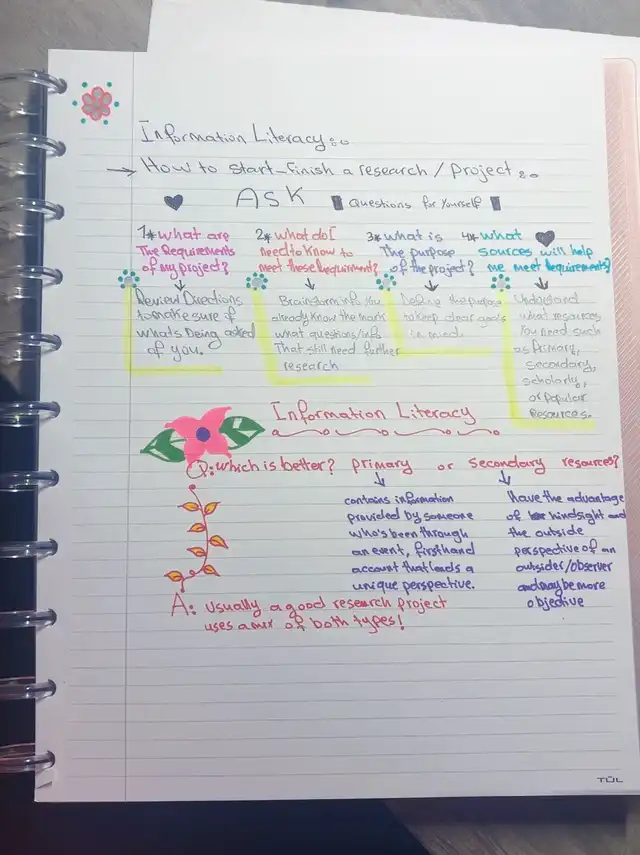 Information Literacy:
→ How to start-finish a research / project:
ASK Questions for Yourself
1* what are
The Requirements
of my project?
Review Directions
to make sure if
whats Being asked
of you.
2* what do I
need to know to
meet these Requirment?
Brainstorm info You
already know the mark
what questions/info
That still need further
research
3* what is
The purpose
of the project?
Define the purpose
to keep clear goals
in mind.
4* what
sources will help
me meet Requirements?
Understand
what resources
You need such
as Primary,
secondary,
scholarly,
or popular
Resources.
Information Literacy
Q: which is better? primary or secondary resources?
contains information
provided by someone
who's been through
an event, firsthand
account that leads a
unique perspective.
Have the advantage
of hindsight and
the outside
perspective of an
outsider/observer
and may be more
objective
A: Usually a good research project
uses a mix of both types!
TUL